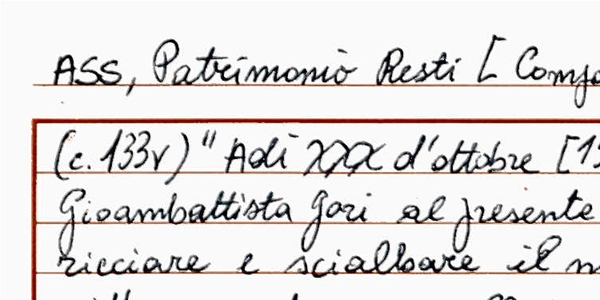 ASS, Patrimonio Resti [
(c. 133v) "Adì XXX d'ottobre [
Gioambattista Gori al presente
ricciare e scialbare il